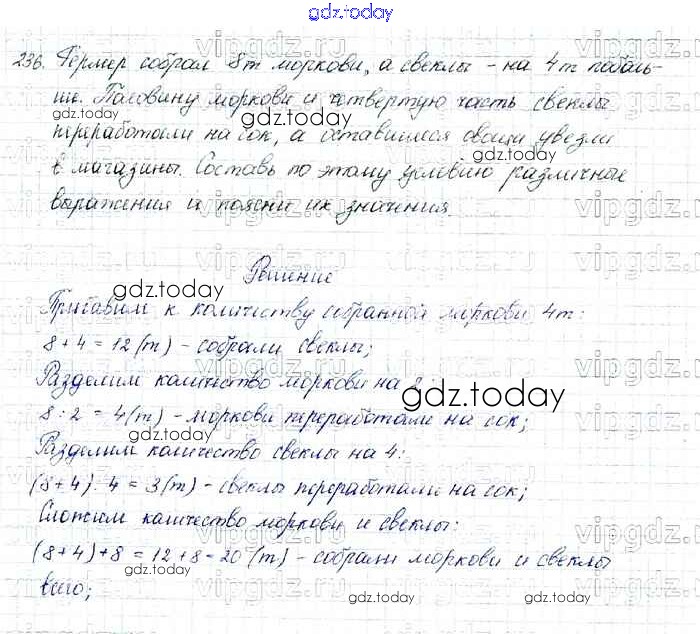 gdz.today
236. Фермер собрал 8т моркови, а свеклы – на 4т поболь-
ше. Половину моркови и четвертую часть свеклы
переработали на сок, а оставшиеся овощи увезли
в магазины. Составь по этому условию различные
выражения и поясни их значения.
Решение
Прибавим к количеству собранной моркови 4т:
8+4=12(т) – собрали свеклы;
Разделим количество моркови на 2:
8:2=4(т) – моркови переработали на сок;
Разделим количество свеклы на 4:
(8+4):4=3(т) – свеклы переработали на сок;
Сложим количество моркови и свеклы:
(8+4)+8=12+8=20(т) – собрали моркови и свеклы
всего;